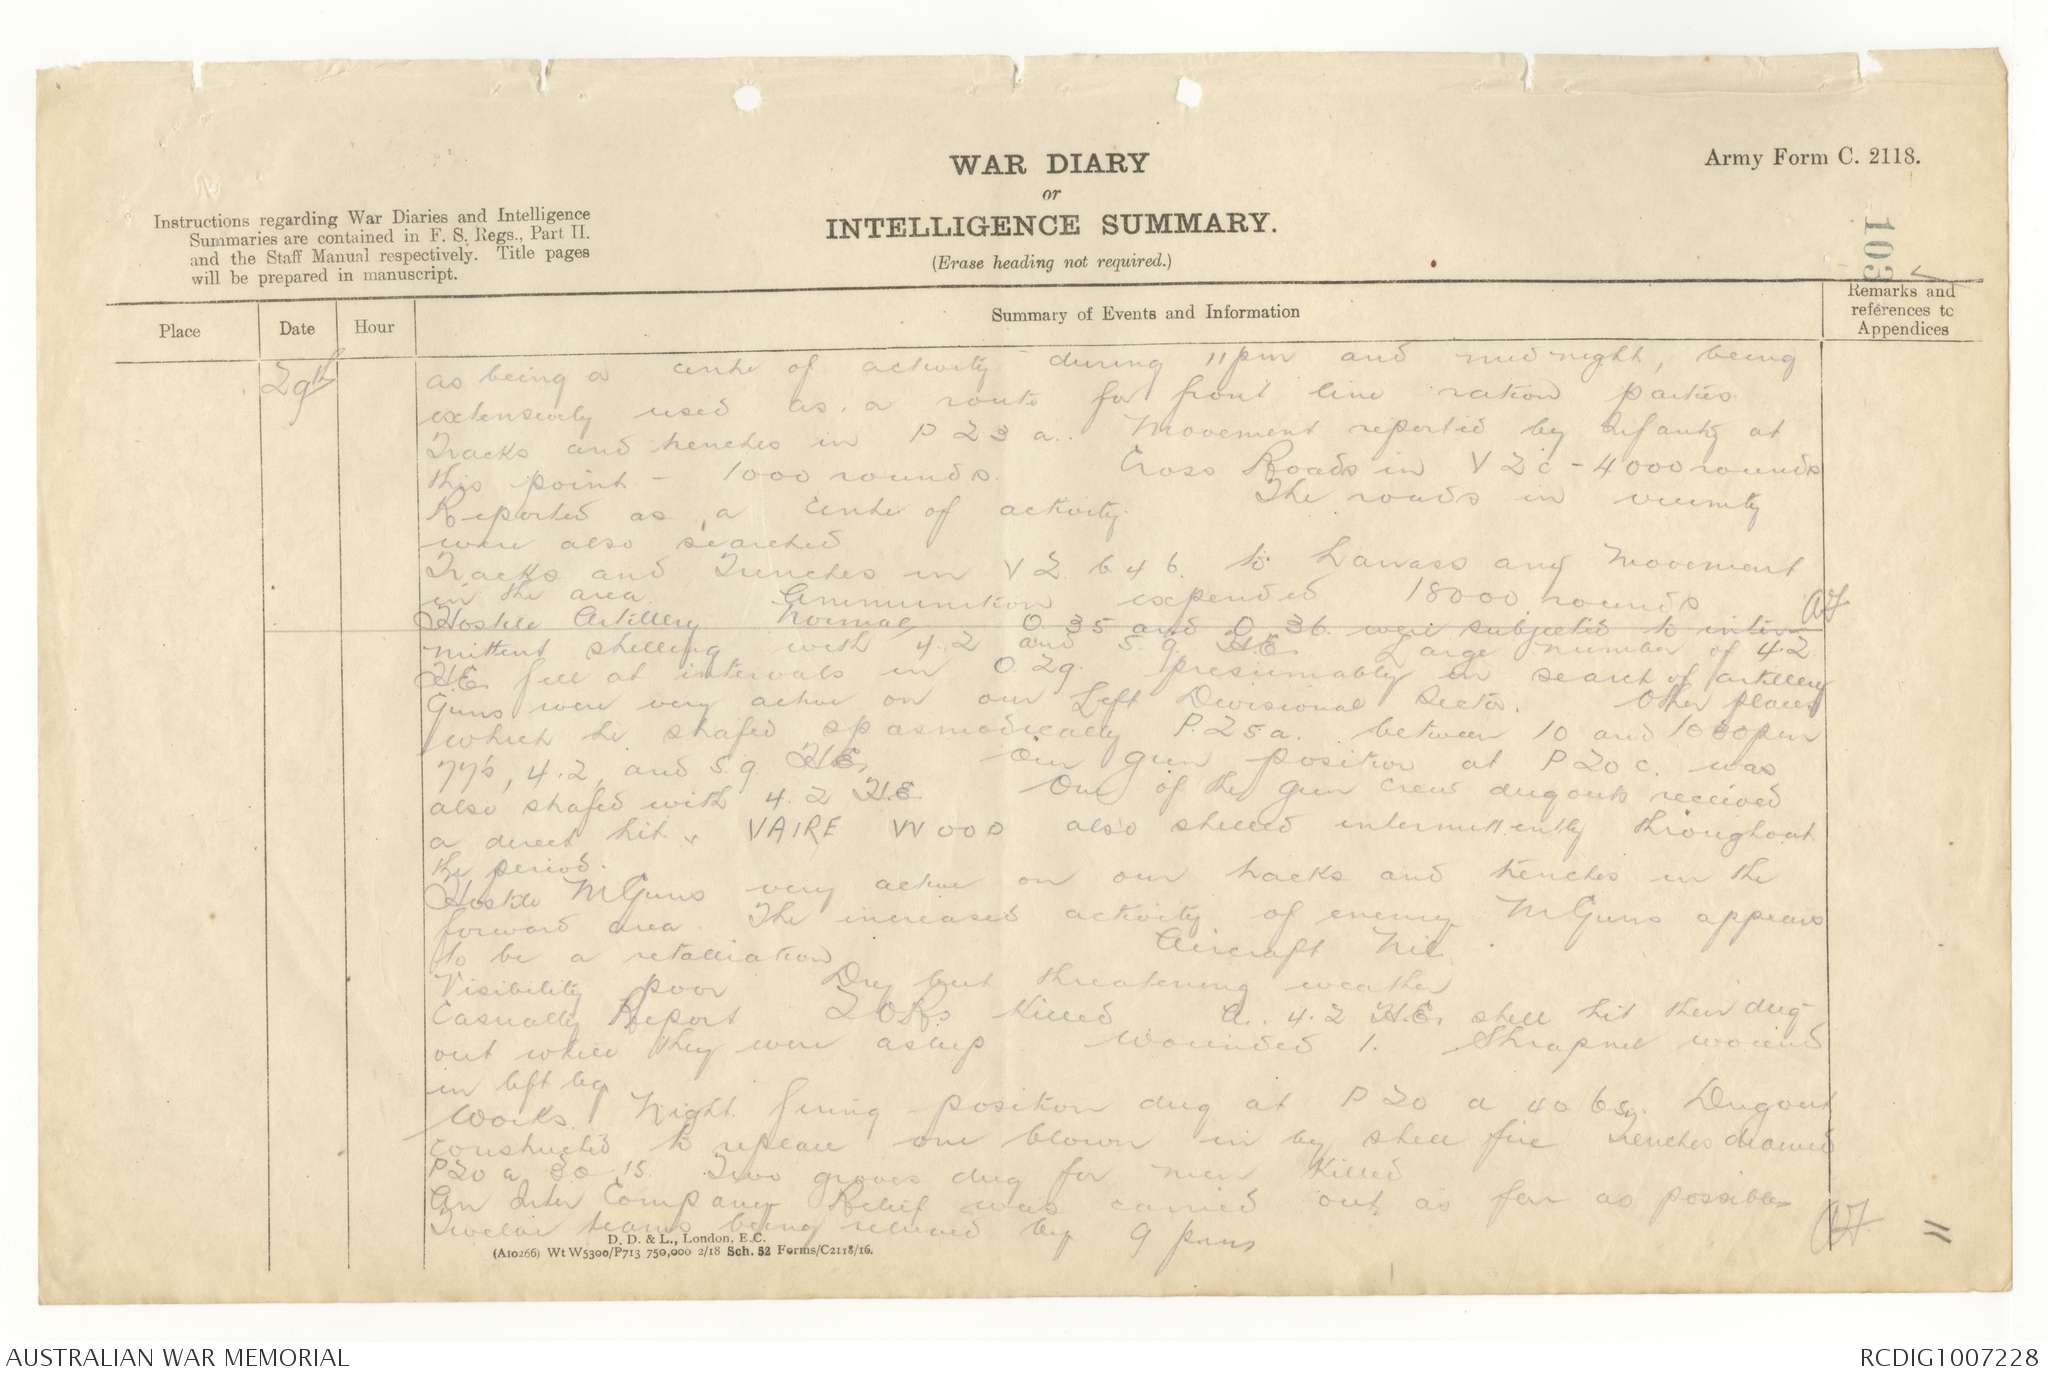 WAR DIARY
or
INTELLIGENCE SUMMARY.
(Erase heading not required.)
Army Form C. 2118.
Instructions regarding War Diaries and Intelligence
Summaries are contained in F. S. Regs., Part II.
and the Staff Manual respectively. Title pages
will be prepared in manuscript.
103
Place
Date
Hour
Summary of Events and Information
Remarks and
references to
Appendices
29th
as being a centre of activity during 11pm and midnight, being
extensively used as a route for front line ration parties
Tracks and trenches in P 23 a.. Movement reported by Infantry at
this point - 1000 rounds. Cross Roads in V 2 c - 4000 rounds
Reported as a centre of activity. The roads in vicinity
were also searched
Tracks and Trenches in V 2. b 4 6. to harrass any Movement
in the area. Ammunition expended 18000 rounds
Hostile Artillery Normal, O. 35 and O 36. were subjected to inter-
mittent shelling with 4.2 and 5.9. H.E. Large number of 4.2
H.E. fell at intervals in O. 29. presumably in search of artillery
Guns were very active on our Left Divisional Sector. Other places
which he strafed spasmodically P. 25 a. between 10 and 1030pm
77's, 4.2, and 5.9 H.E. Our gun position at P 20 c. was
also strafed with 4.2 H.E. One of the gun crew dugouts received
a direct hit. VAIRE WOOD also shelled intermittently throughout
the period.
Hostile M Guns very active on our tracks and trenches in the
forward area. The increased activity of enemy M Guns appears
to be a retalliation Aircraft Nil.
Visibility poor Dry but threatening weather
Casualty Report 2 ORs Killed A. 4.2 H.E. shell hit their dug-
out while they were asleep Wounded 1. Shrapnel wound
in left leg
Works. Night firing position dug at P 20 a 40 65. Dugout
constructed to replace one blown in by shell fire Trenches drained
P20 a 30 15. Two graves dug for men Killed
An Inter Company Relief was carried out as far as possible
Twelve teams being relieved by 9 pm
D. D. & L., London, E.C.
(A10266) Wt W5300/P713 750,000 2/18 Sch. 52 Forms/C2118/16.
AUSTRALIAN WAR MEMORIAL
RCDIG1007228